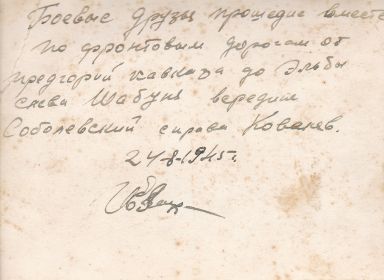 Боевые друзья прошедшие вместе
по фронтовым дорогам от
предгорий кавказа до Эльбы
слева Шабунь вередине
Соболевский справа Ковалев.
24-8-1945г.